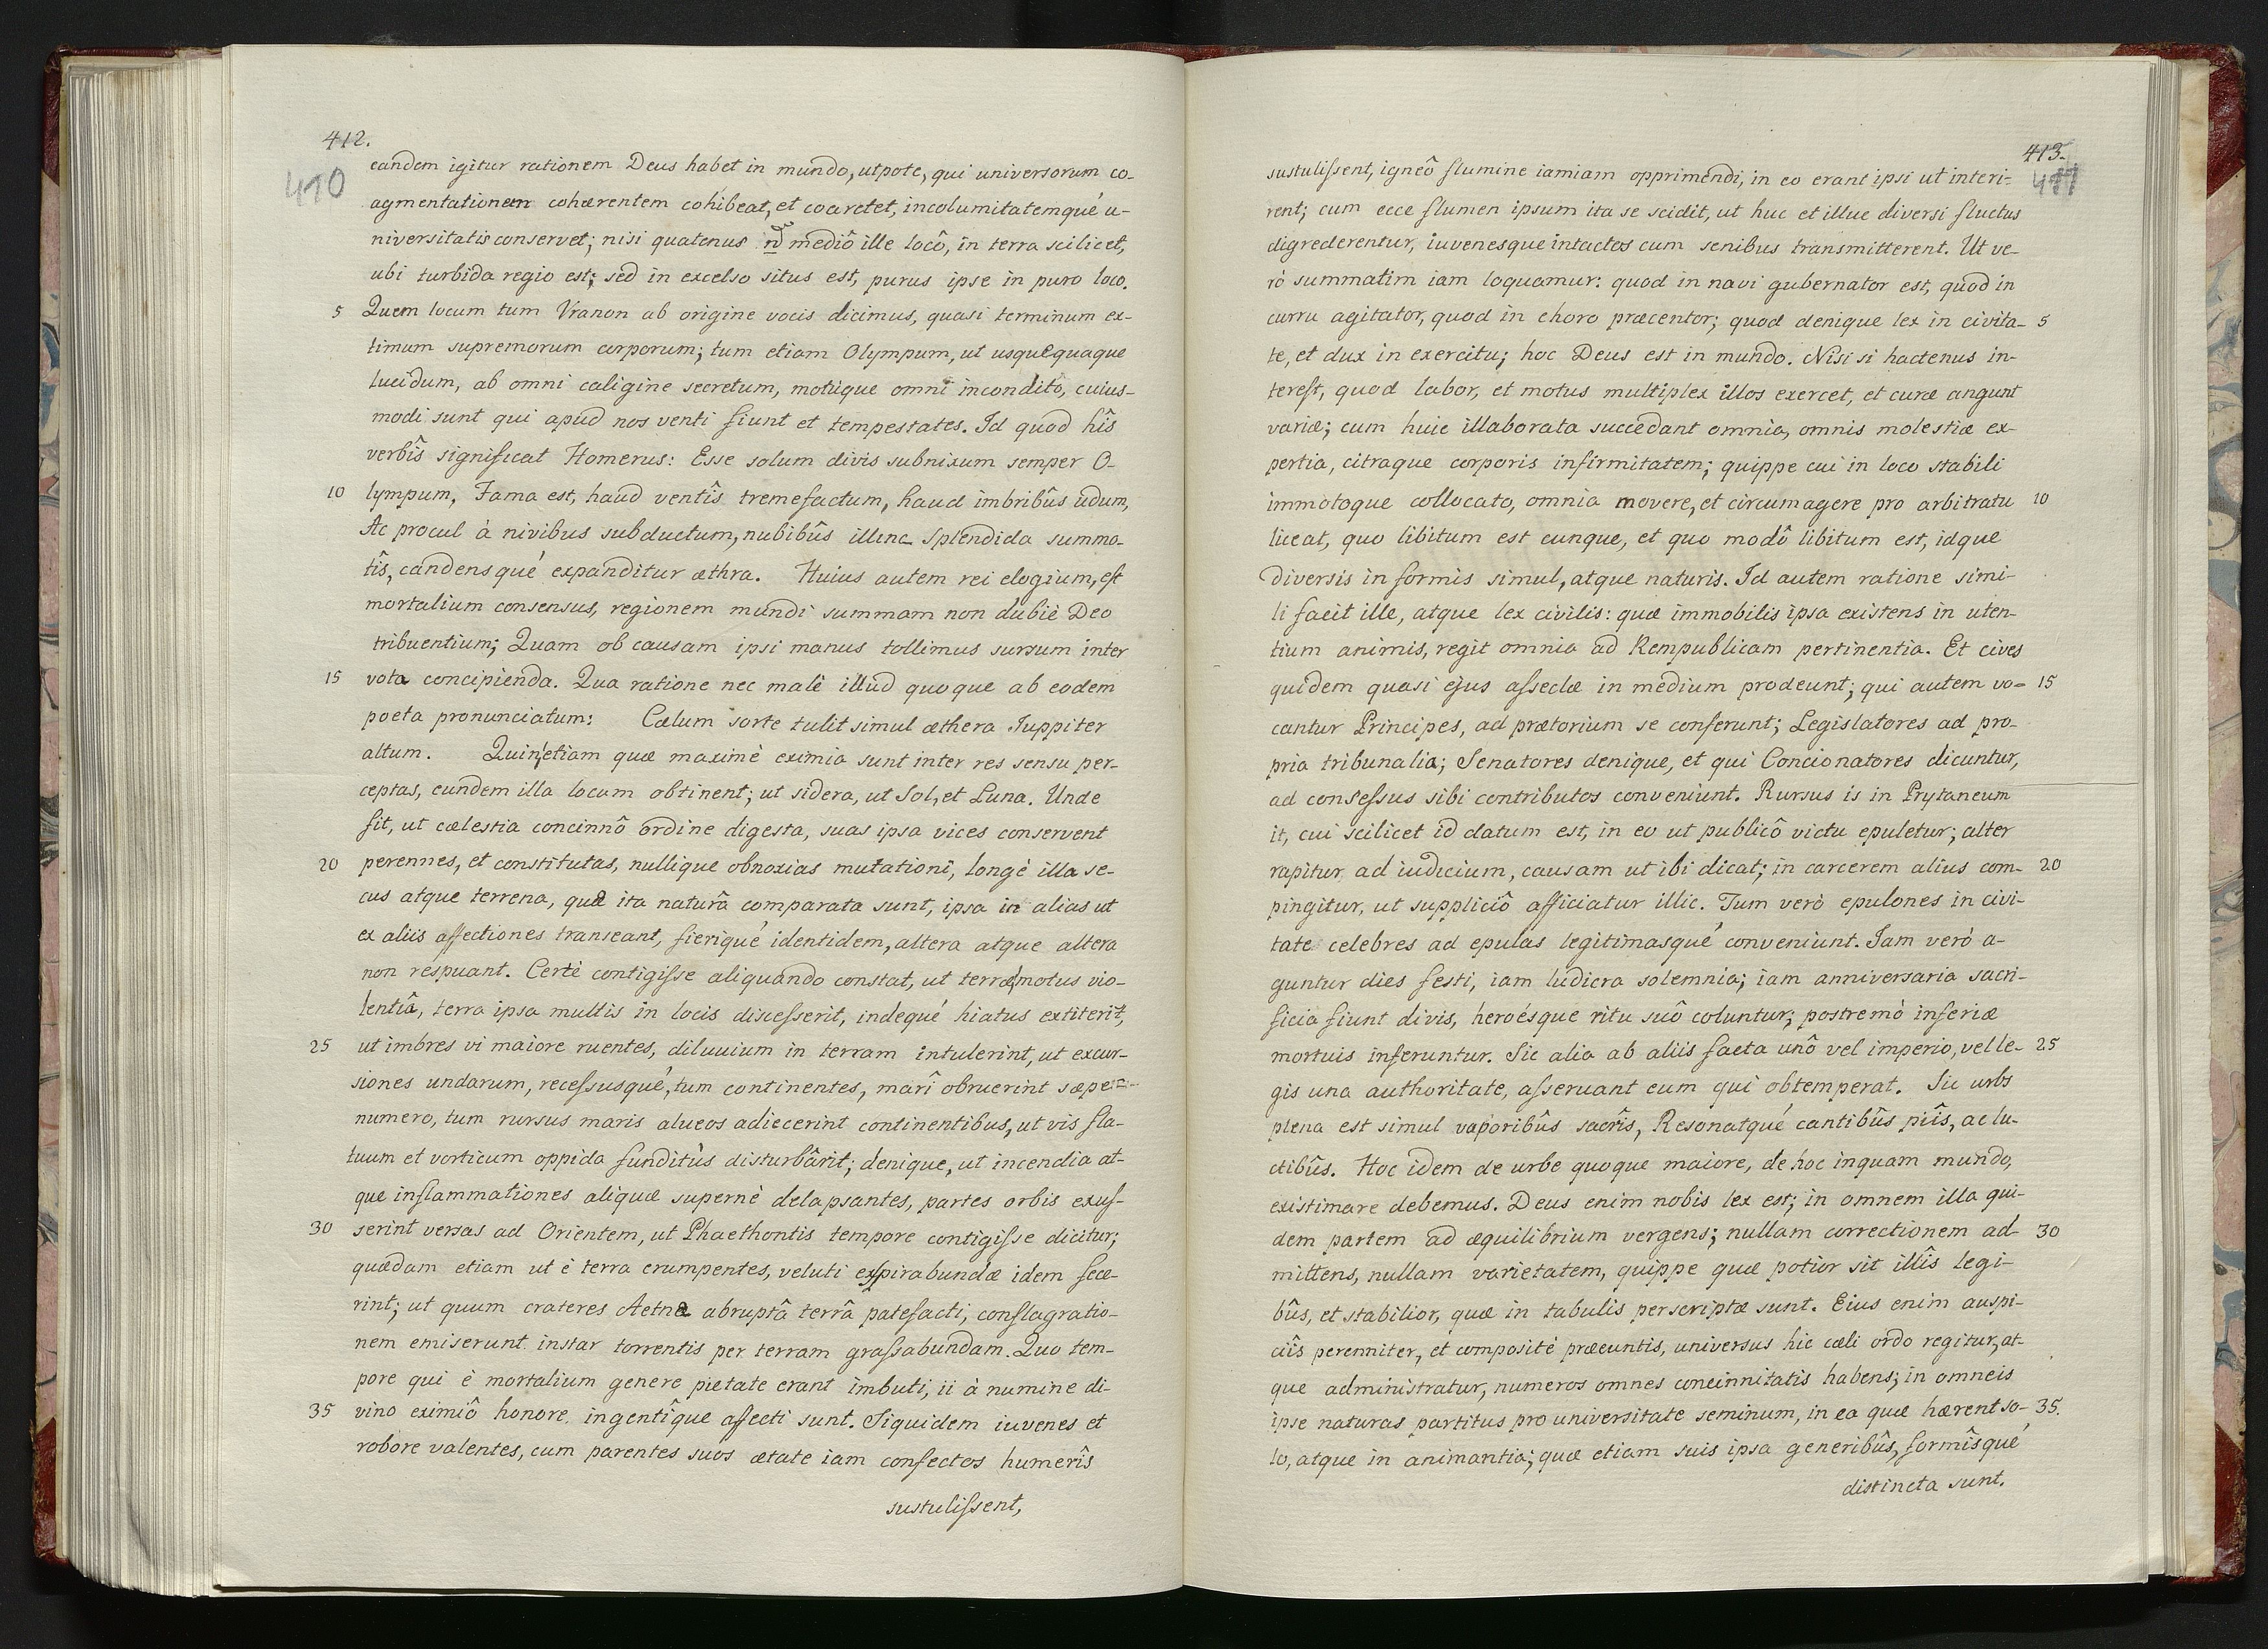 412.
410
eandem igitur rationem Deus habet in mundo, utpote, qui universorum co-
agmentationem cohærentem cohibeat, et coarctet, incolumitatemqué u-
niversitatis conservet; nisi quatenus medió ille locô, in terra scilicet,
ubi turbida regio est; sed in excelso situs est, purus ipse in puro loco.
5 Quem locum tum Vranon ab origine vocis dicimus, quasi terminum ex-
timum supremorum corporum; tum etiam Olympum, ut usquequaque
lucidum, ab omni caligine secretum, motúque omni incondito, cuius-
modi sunt qui apud nos venti fiunt et tempestates. Id quod hîs
verbîs significat Homerus: Esse solum divis subnixum semper O-
10 lympum, Fama est, haud ventîs tremefactum, haud imbribûs udum,
Ac procul à nivibus subductum, nubibûs illinc Splendida summo-
tîs, candensqué expanditur æthra. Huius autem rei elogium, est
mortalium consensus, regionem mundi summam non dubiè Deo
tribuentium; Quam ob causam ipsi manus tollimus sursum inter
15 vota concipienda. Qua ratione nec malè illud quoque ab eodem
poeta pronunciatum: Cælum sorte tulit simul æthera Juppiter
altum. Quin etiam quæ maximè eximia sunt inter res sensu per-
ceptas, eundem illa locum obtinent; ut sidera, ut Sol, et Luna. Unde
fit, ut cælestia concinnô ordine digesta, suas ipsa vices conservent
20 perennes, et constitutas, nullique obnoxias mutationi, longè illa se-
cus atque terrena, quæ ita naturâ comparata sunt, ipsa in alias ut
ex aliis affectiones transeant, fieriqué identidem, altera atque altera
non respuant. Certè contigisse aliquando constat, ut terræmotus vio-
lentiâ, terra ipsa multis in locis discesserit, indequé hiatus extiterit,
25 ut imbres vi maiore ruentes, diluuium in terram intulerint, ut excur-
siones undarum, recessusqué, tum continentes, marî obruerint sæpe-
numero, tum rursus maris alueos adiecerint continentibus, ut vis fla-
tuum et vorticum oppida funditùs disturbârit; denique, ut incendia at-
que inflammationes aliquæ supernè delapsantes, partes orbis exus-
30 serint versas ad Orientem, ut Phaethontis tempore contigisse dicitur;
quædam etiam ut è terra erumpentes, veluti exspirabundæ idem fece-
rint; ut quum crateres Aetnæ abruptâ terrâ patefacti, conflagratio-
nem emiserunt instar torrentis per terram grassabundam. Quo tem-
pore qui è mortalium genere pietate erant imbuti, ii à numine di-
35 vino eximiô honore ingentîque affecti sunt. Siquidem iuvenes et
robore valentes, cum parentes suos ætate iam confectos humerîs
sustulissent,
413.
411
sustulissent, igneô flumine iamiam opprimendi, in eo erant ipsi ut interi-
rent; cum ecce flumen ipsum ita se scidit, ut huc et illuc diversi fluctus
digrederentur, iuvenesque intactos cum senibus transmitterent. Ut ve-
rò summatim iam loquamur: quod in navi gubernator est, quod in
curru agitator, quod in choro præcentor; quod denique lex in civita- 5
te, et dux in exercitu; hoc Deus est in mundo. Nisi si hactenus in-
terest, quod labor, et motus multiplex illos exercet, et curæ angunt
variæ; cum huic illaborata succedant omnia, omnis molestiæ ex-
pertia, citraque corporis infirmitatem; quippe cui in loco stabili
immotoque collocato, omnia movere, et circumagere pro arbitratu 10
liceat, quo libitum est cunque, et quo modô libitum est, idque
diversis in formis simul, atque naturis. Id autem ratione simi-
li facit ille, atque lex civilis: quæ immobilis ipsa existens in uten-
tium animis, regit omnia ad Rempublicam pertinentia. Et cives
quidem quasi ejus asseclæ in medium prodeunt; qui autem vo- 15
cantur Principes, ad prætorium se conferunt; Legislatores ad pro-
pria tribunalia; Senatores denique, et qui Concionatores dicuntur,
ad consessus sibi contributos conveniunt. Rursus is in Prytaneum
it, cui scilicet id datum est, in eo ut publicô victu epuletur; alter
rapitur ad iudicium, causam ut ibi dicat; in carcerem alius com- 20
pingitur, ut suppliciô afficiatur illic. Tum verò epulones in civi-
tate celebres ad epulas legitimasqué conveniunt. Iam verò a-
guntur dies festi, iam ludicra solemnia; iam anniversaria sacri-
ficia fiunt divis, heroésque ritu suô coluntur; postremò inferiæ
mortuis inferuntur. Sic alia ab aliis facta unô vel imperio, vel le- 25
gis una authoritate, asseruant eum qui obtemperat. Sic urbs
plena est simul vaporibûs sacrîs, Resonatqué cantibûs piîs, ac lu-
ctibûs. Hoc idem de urbe quoque maiore, de hoc inquam mundo,
existimare debemus. Deus enim nobis lex est; in omnem illa qui-
dem partem ad æquilibrium vergens; nullam correctionem ad- 30
mittens, nullam varietatem, quippe quæ potior sit illîs legi-
bûs, et stabilior, quæ in tabulis perscriptæ sunt. Eius enim auspi-
ciîs perenniter, et compositè præeuntis, universus hic cæli ordo regitur, at-
que administratur, numeros omnes concinnitatis habens; in omneis
ipse naturas partitus pro universitate seminum, in ea quæ hærent so- 35.
lo, atque in animantia; quæ etiam suis ipsa generibûs, formîsqué
distincta sunt.